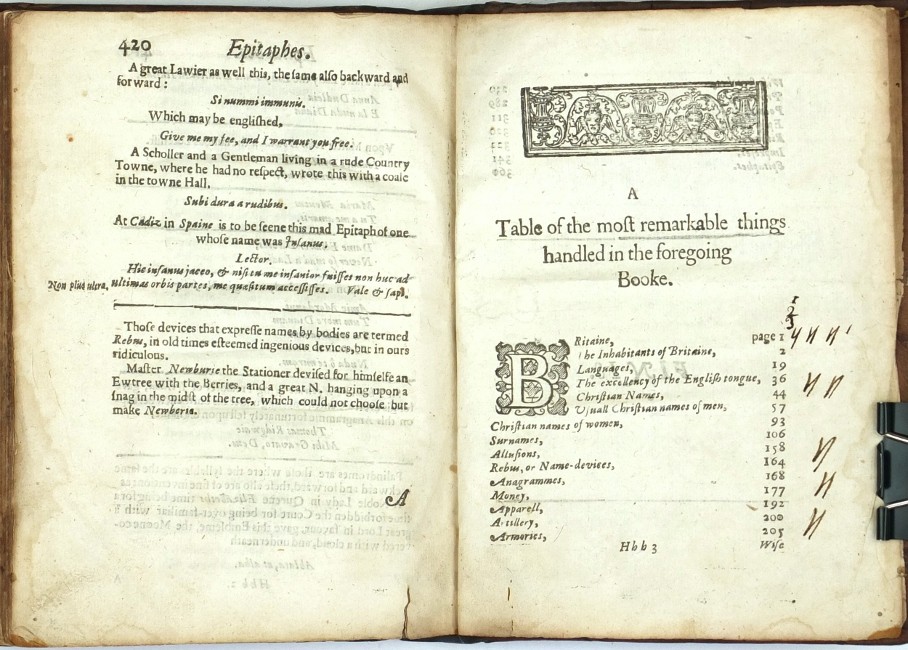 420 Epitaphes.
A great Lawier as well this, the same also backward and
forward:
Si nummi immunis.
Which may be englished,
Give me my fee, and I warrant you free.
A Scholler and a Gentleman living in a rude Country
Towne, where he had no respect, wrote this with a coale
in the towne Hall,
Subi dura a rudibus.
At Cadiz in Spaine is to be seene this mad Epitaph of one
whose name was Insanus.
Lector.
Hic insanus jaceo, & nisi tu me insanior fuisses non huc ad
Non plus ultra, ultimas orbis partes, me quæsitum accessisses. Vale & sapi.
Those devices that expresse names by bodies are termed
Rebus, in old times esteemed ingenious devices, but in ours
ridiculous.
Master Newburie the Stationer devised for himselfe an
Ewtree with the Berries, and a great N, hanging upon a
snag in the midst of the tree, which could not choose but
make Newberie.
A
A
Table of the most remarkable things
handled in the foregoing
Booke.
BRitaine, page 1
The Inhabitants of Britaine, 2
Languages, 19
The excellency of the English tongue, 36
Christian Names, 44
Usuall Christian names of men, 57
Christian names of women, 93
Surnames, 106
Allusions, 158
Rebus, or Name-devices, 164
Anagrammes, 168
Money, 177
Apparell, 192
Artillery, 200
Armories, 205
Hhh 3 Wise
1
2
3